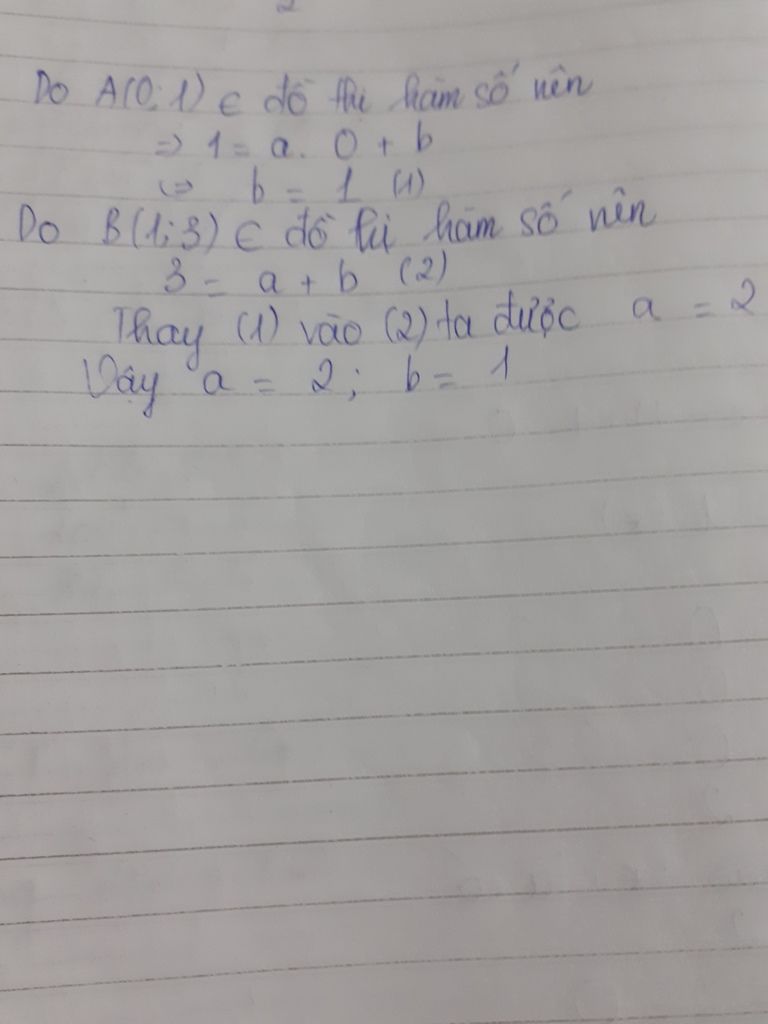 Do A(0;1) ∈ đồ thị hàm số nên
=> 1 = a. 0 + b
<=> b = 1 (1)
Do B(1;3) ∈ đồ thị hàm số nên
3 = a + b (2)
Thay (1) vào (2) ta được a = 2
Vậy a = 2; b = 1